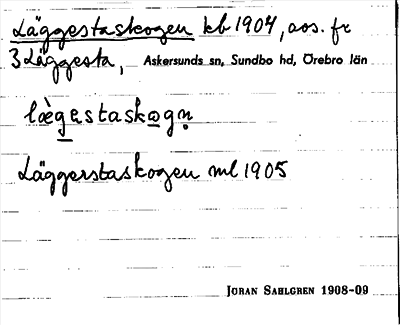 Läggestaskogen kb 1904, aos. fr
3 Läggesta, Askersunds sn, Sundbo hd, Örebro län
læ̀gestaskogn̥
Läggerstaskogen ml 1905
Jöran Sahlgren 1908-09